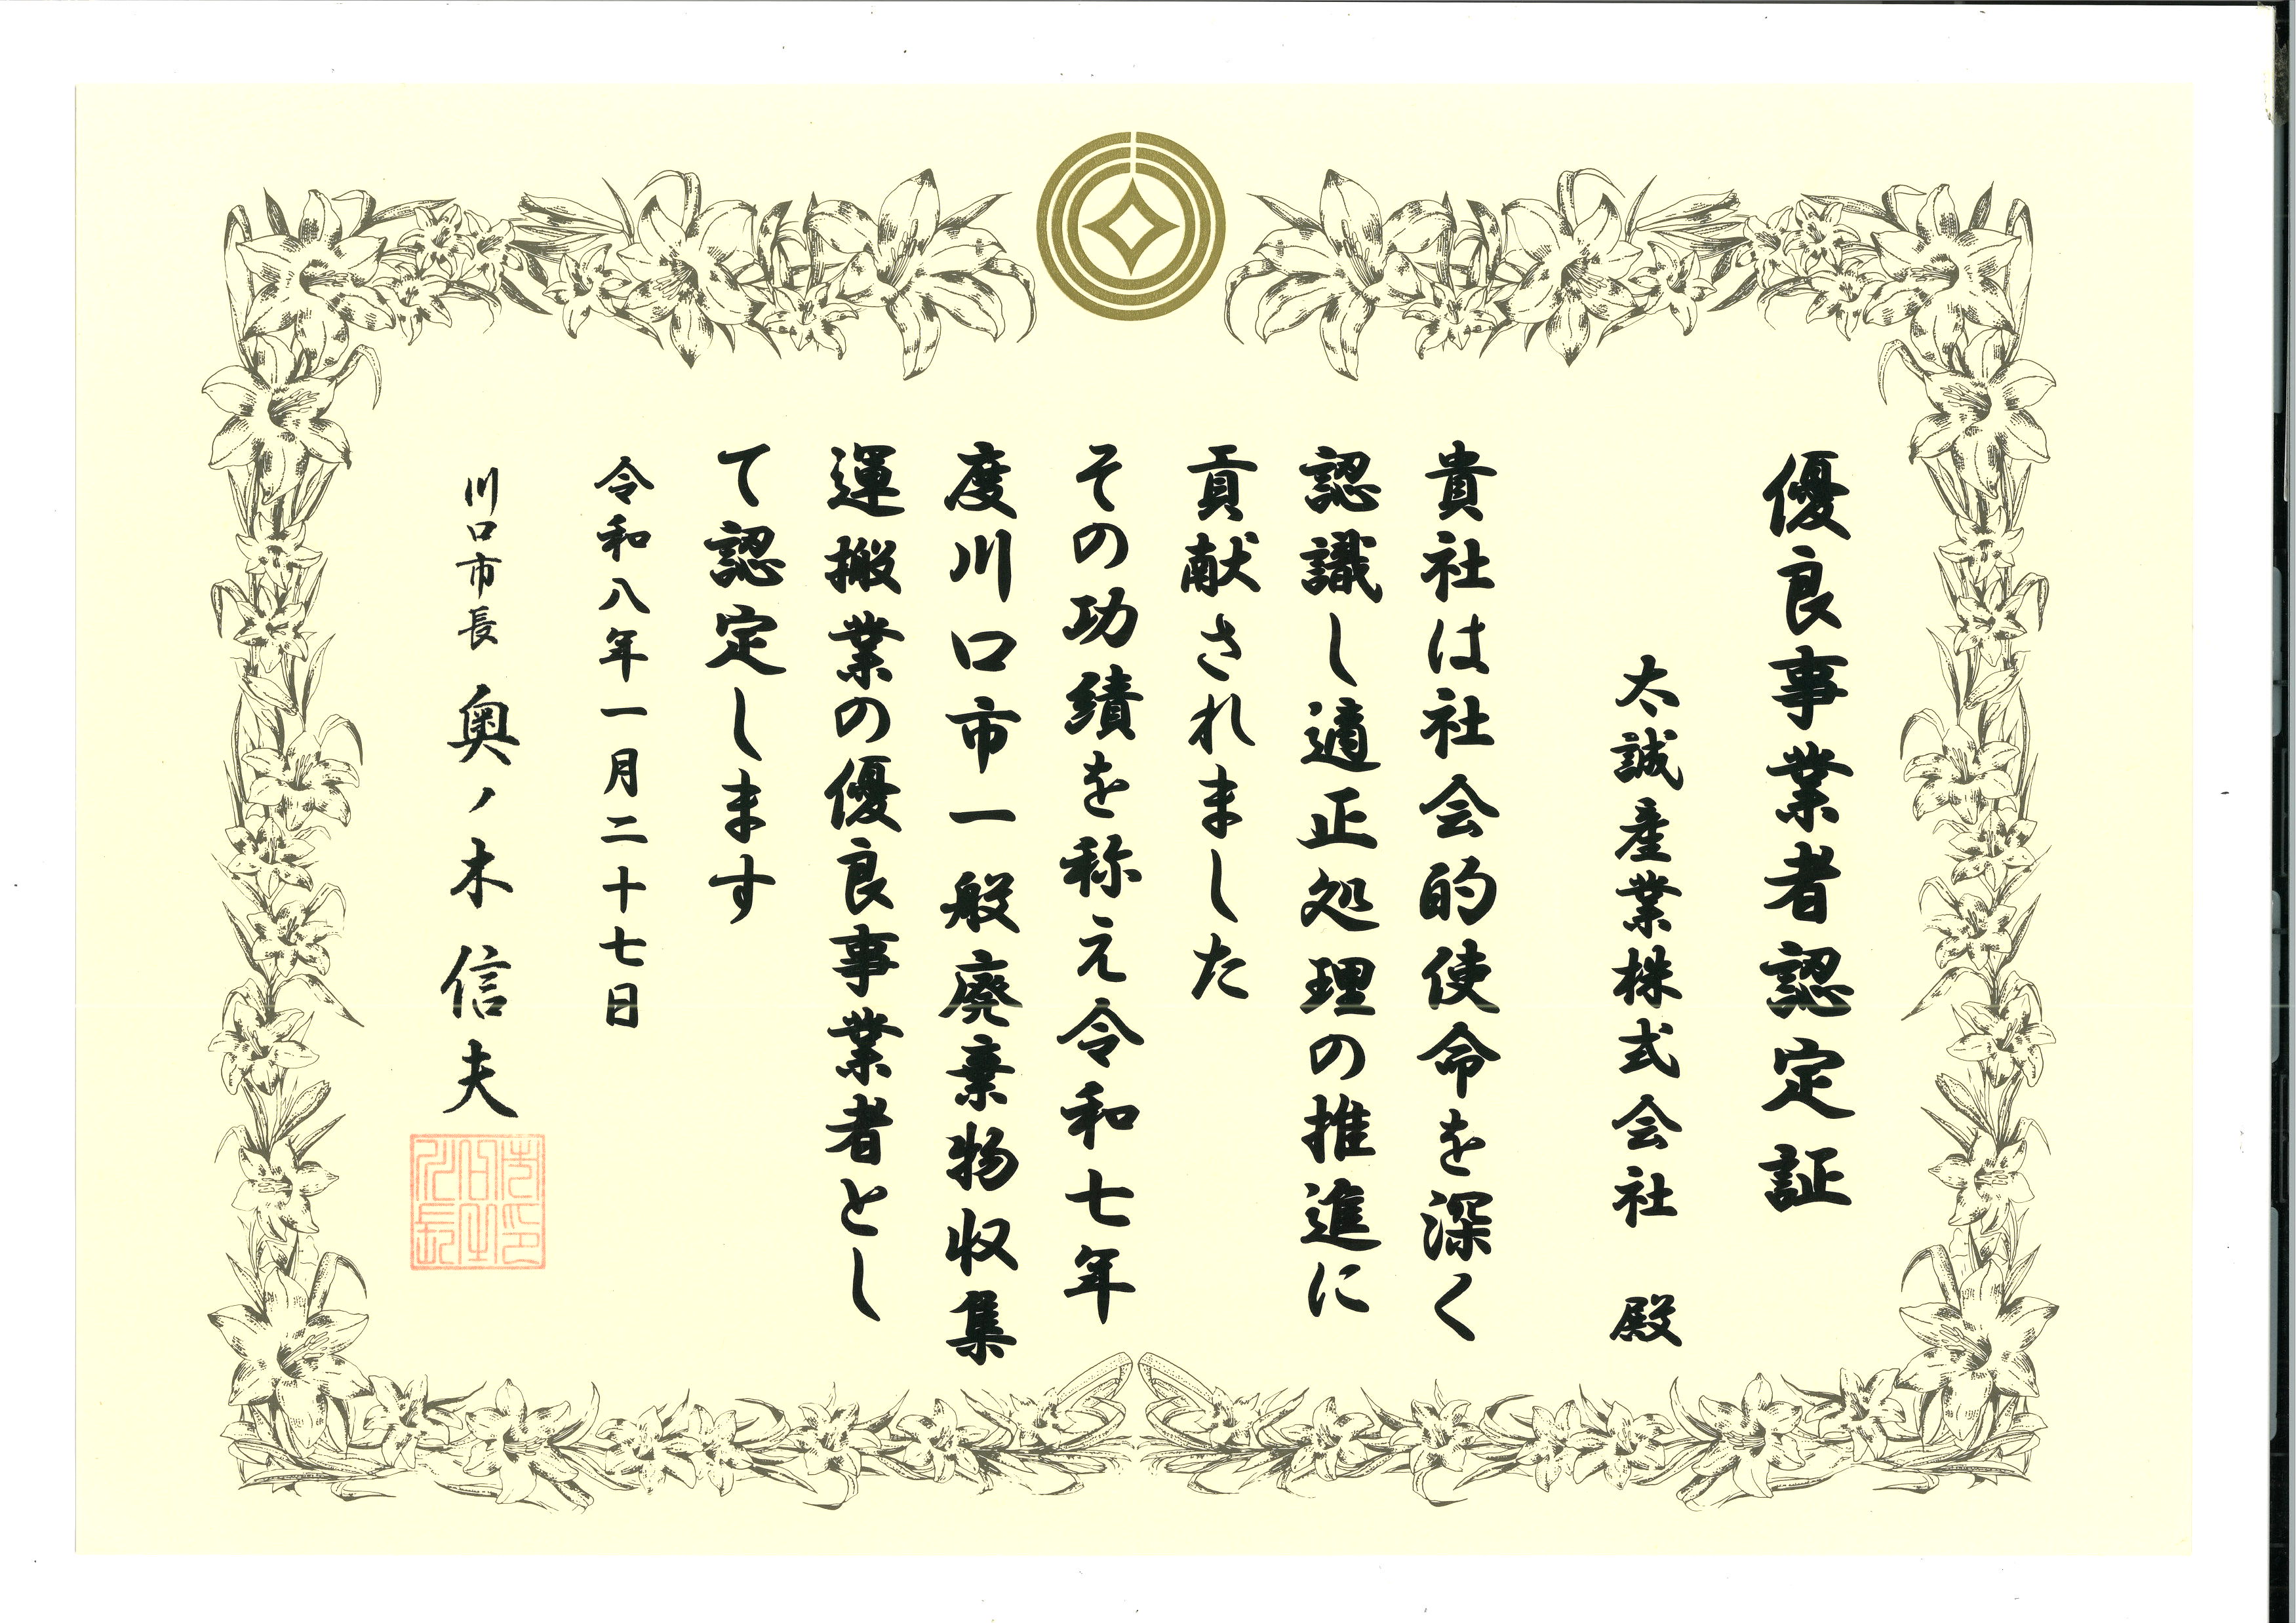 優良事業者認定証
太誠産業株式会社 殿
貴社は社会的使命を深く
認識し適正処理の推進に
貢献されました
その功績を称え令和七年
度川口市一般廃棄物収集
運搬業の優良事業者とし
て認定します
令和八年一月二十七日
川口市長 奥ノ木 信夫